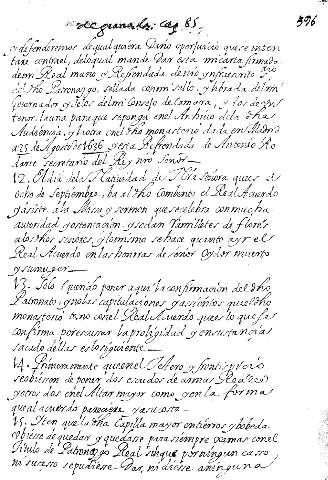 de granada. Cap. 85.
396
y defenderemos de qualquiera Daño oposiçion que se inten
tare contra el, de lo qual mande Dar esta mi carta firmada
de mi Real mano y Refrendada de mi ynfrascrito srio
del dho Patronazgo, sellada con mi sello, y librada del mi
Governador y de los de mi Consejo de Camara, y los de un
tenor, la una para que se ponga en el Archivo de la dha
Audiencia, y la otra en el dho monasterio dada en Madrid
a 25 de Agosto de 1636 y esta Refrendada de Antonio Ro
darte secretario del Rey nro Señor
12. El dia de la Natividad de Nra señora que es a
ocho de septiembre, ba al dho combento el Real Acuerdo
y asiste a la Missa y sermon que se celebra con mucha
autoridad y ostentaçion y se dan Ramilletes de flores
a los dhos señores, y lo mismo se hace quando ay el
Real Acuerdo en las honras de señor oydor muerto
y su muger
13. Solo e querido poner aqui la confirmaçion del dho
Patronato, y no las capitulaçiones y asientos que el dho
monasterio tomo con el Real Acuerdo que es lo que se
confirma por escusar la prolixidad y en sustançia
sacado dellas es lo siguiente
14. Primeramente que en el Testero y frontispicio
se obiesen de poner dos escudos de armas Reales
y otros dos en el Altar mayor como y en la forma
que al acuerdo pareçiere y a su costa
15. Iten que la dha Capilla mayor entierros y bobeda
obiese de quedar y quedase para siempre xamas con el
Titulo de Patronazgo Real sin que por ningun caso
ni suceso se pudiese Dar, ni diese a ninguna